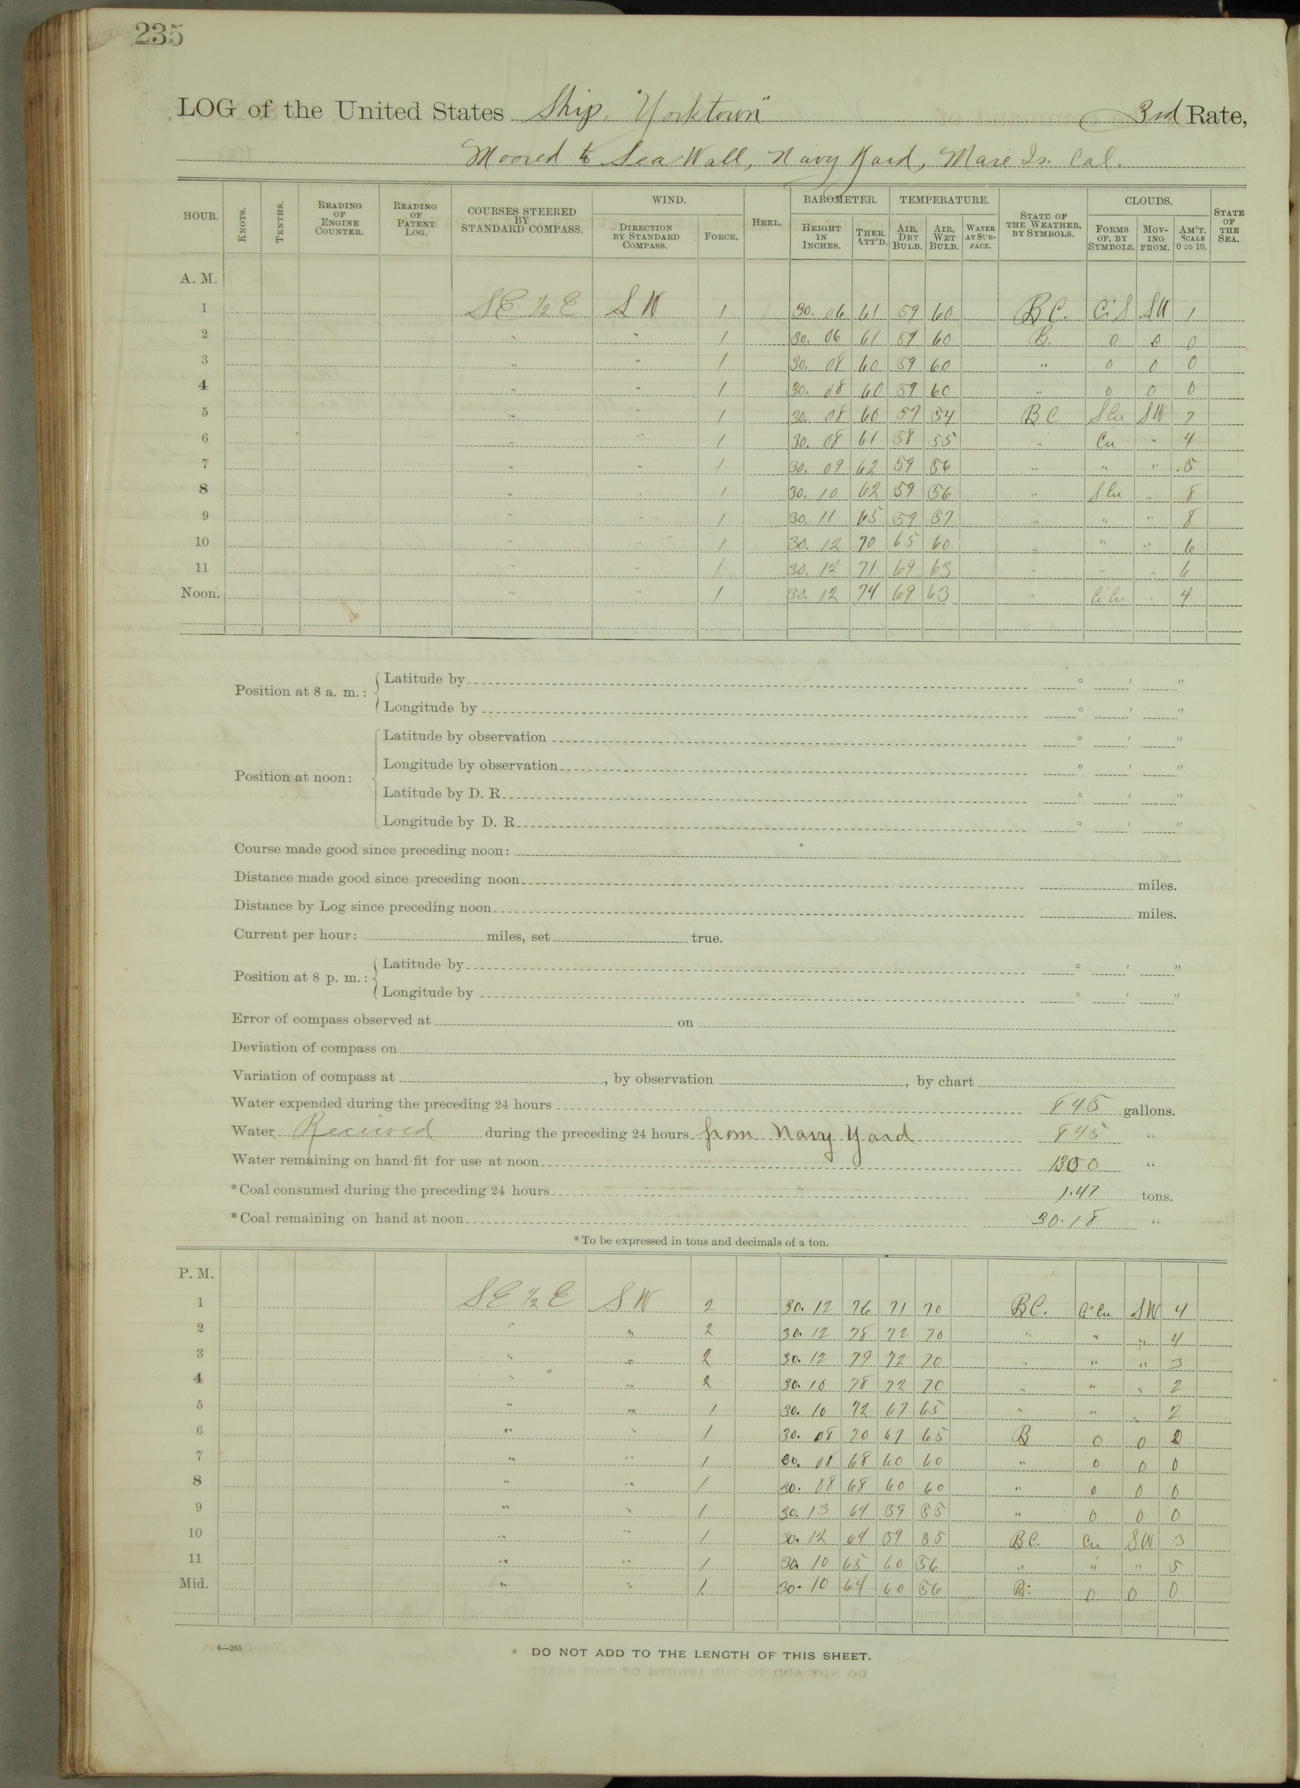 235
LOG of the United States Ship. "Yorktown" 3rd Rate,
Moored to Sea Wall, Navy Yard, Mare Is. Cal.
HOUR. KNOTS. TENTHS. READING OF ENGINE COUNTER. READING OF PATENT LOG. COURSES STEERED BY STANDARD COMPASS. WIND. DIRECTION BY STANDARD COMPASS. FORCE. HEEL. BAROMETER. HEIGHT IN INCHES. THER. ATT'D. TEMPERATURE. AIR, DRY BULB. AIR, WET BULB. WATER AT SURFACE. STATE OF THE WEATHER, BY SYMBOLS. CLOUDS. FORMS OF, BY SYMBOLS. MOVING FROM. AM'T. SCALE 0 TO 10. STATE OF THE SEA.
A. M.
1 SE ½ E SW 1 30. 06 61 59 60 BC. Ci S SW 1
2 " " 1 30. 06 61 59 60 B. 0 0 0
3 " " 1 30. 08 60 59 60 " 0 0 0
4 " " 1 30. 08 60 59 60 " 0 0 0
5 " " 1 30. 08 60 57 54 BC S Cu SW 7
6 " " 1 30. 08 61 58 55 " Cu " 4
7 " " 1 30. 09 62 59 56 " " " .5
8 " " 1 30. 10 62 59 56 " S Cu " 8
9 " " 1 30. 11 65 59 57 " " " 8
10 " " 1 30. 12 70 65 60 " " " 6
11 " " 1 30. 12 71 69 63 " " " 6
Noon. " " 1 30. 12 74 69 63 " Ci Cu " 4
Position at 8 a. m.: Latitude by ° ' "
Longitude by ° ' "
Position at noon: Latitude by observation ° ' "
Longitude by observation ° ' "
Latitude by D. R. ° ' "
Longitude by D. R. ° ' "
Course made good since preceding noon:
Distance made good since preceding noon miles.
Distance by Log since preceding noon miles.
Current per hour: miles, set true.
Position at 8 p. m.: Latitude by ° ' "
Longitude by ° ' "
Error of compass observed at on
Deviation of compass on
Variation of compass at , by observation , by chart
Water expended during the preceding 24 hours 845 gallons.
Water Received during the preceding 24 hours from Navy Yard 845 "
Water remaining on hand fit for use at noon 1300 "
*Coal consumed during the preceding 24 hours 1.47 tons.
*Coal remaining on hand at noon 30.18 "
*To be expressed in tons and decimals of a ton.
P. M.
1 SE ½ E SW 2 30. 12 76 71 70 BC. Ci Cu SW 4
2 " " 2 30. 12 78 72 70 " " " 4
3 " " 2 30. 12 79 72 70 " " " 3
4 " " 2 30. 10 78 72 70 " " " 2
5 " " 1 30. 10 72 67 65 " " " 2
6 " " 1 30. 08 70 67 65 B 0 0 0
7 " " 1 30. 08 68 60 60 " 0 0 0
8 " " 1 30. 08 68 60 60 " 0 0 0
9 " " 1 30. 13 64 59 55 " 0 0 0
10 " " 1 30. 12 64 59 55 BC. Cu SW 3
11 " " 1 30. 10 65 60 56 " " " 5
Mid. " " 1. 30. 10 64 60 56 B: 0 0 0
4—265
DO NOT ADD TO THE LENGTH OF THIS SHEET.